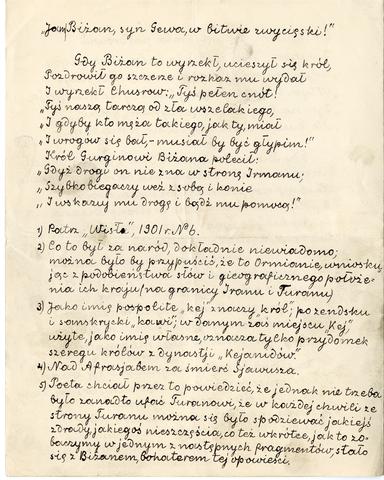 „Jam Biżan, syn Gewa, w bitwie zwycięski!"
Gdy Biżan to wyrzekł, ucieszył się król,
Pozdrowił go szczerze i rozkaz mu wydał
I wyrzekł Chusrow: „Tyś pełen cnót!
„Tyś naszą tarczą od zła wszelakiego,
„I gdyby kto męża takiego, jak ty, miał
„I wrogów się bał,-musiał by być głypim!"
Król Gurginowi Biżana polecił:
„Gdyż drogi on nie zna w stronę Irmanu;
„Szybkobiegaczy weź z sobą i konie
„I wskazuj mu drogę i bądź mu pomocą!"
1) Patrz „Wisła", 1901 r. № 6.
2) Co to był za naród, dokładnie niewiadomo;
można było by przypuścić, że to Ormianie, wniosku-
jąc z podobieństwa słów i gieograficznego położe-
nia ich kraju (na granicy Iranu i Turanu)
3) Jako imię pospolite „kej" znaczy król; po zendsku
i sanskrycki „kawi"; w danym zaś miejscu „Kej"
użyte, jako imię własne, oznacza tylko przydomek
szeregu królów z dynastji „Kejanidów".
4) Nad Afrasjabem za śmierć Sjawusza.
5) Poeta chciał przez to powiedzieć, że jednak nie trzeba
było zanadto ufać Turanowi, że w każdej chwili ze
strony Turanu można się było spodziewać jakiejś
zdrady, jakiegoś nieszczęścia, co też wkrótce, jak to zo-
baczymy w jednym z następnych fragmentów, stało
się z Biżanem, bohaterem tej opowieści.